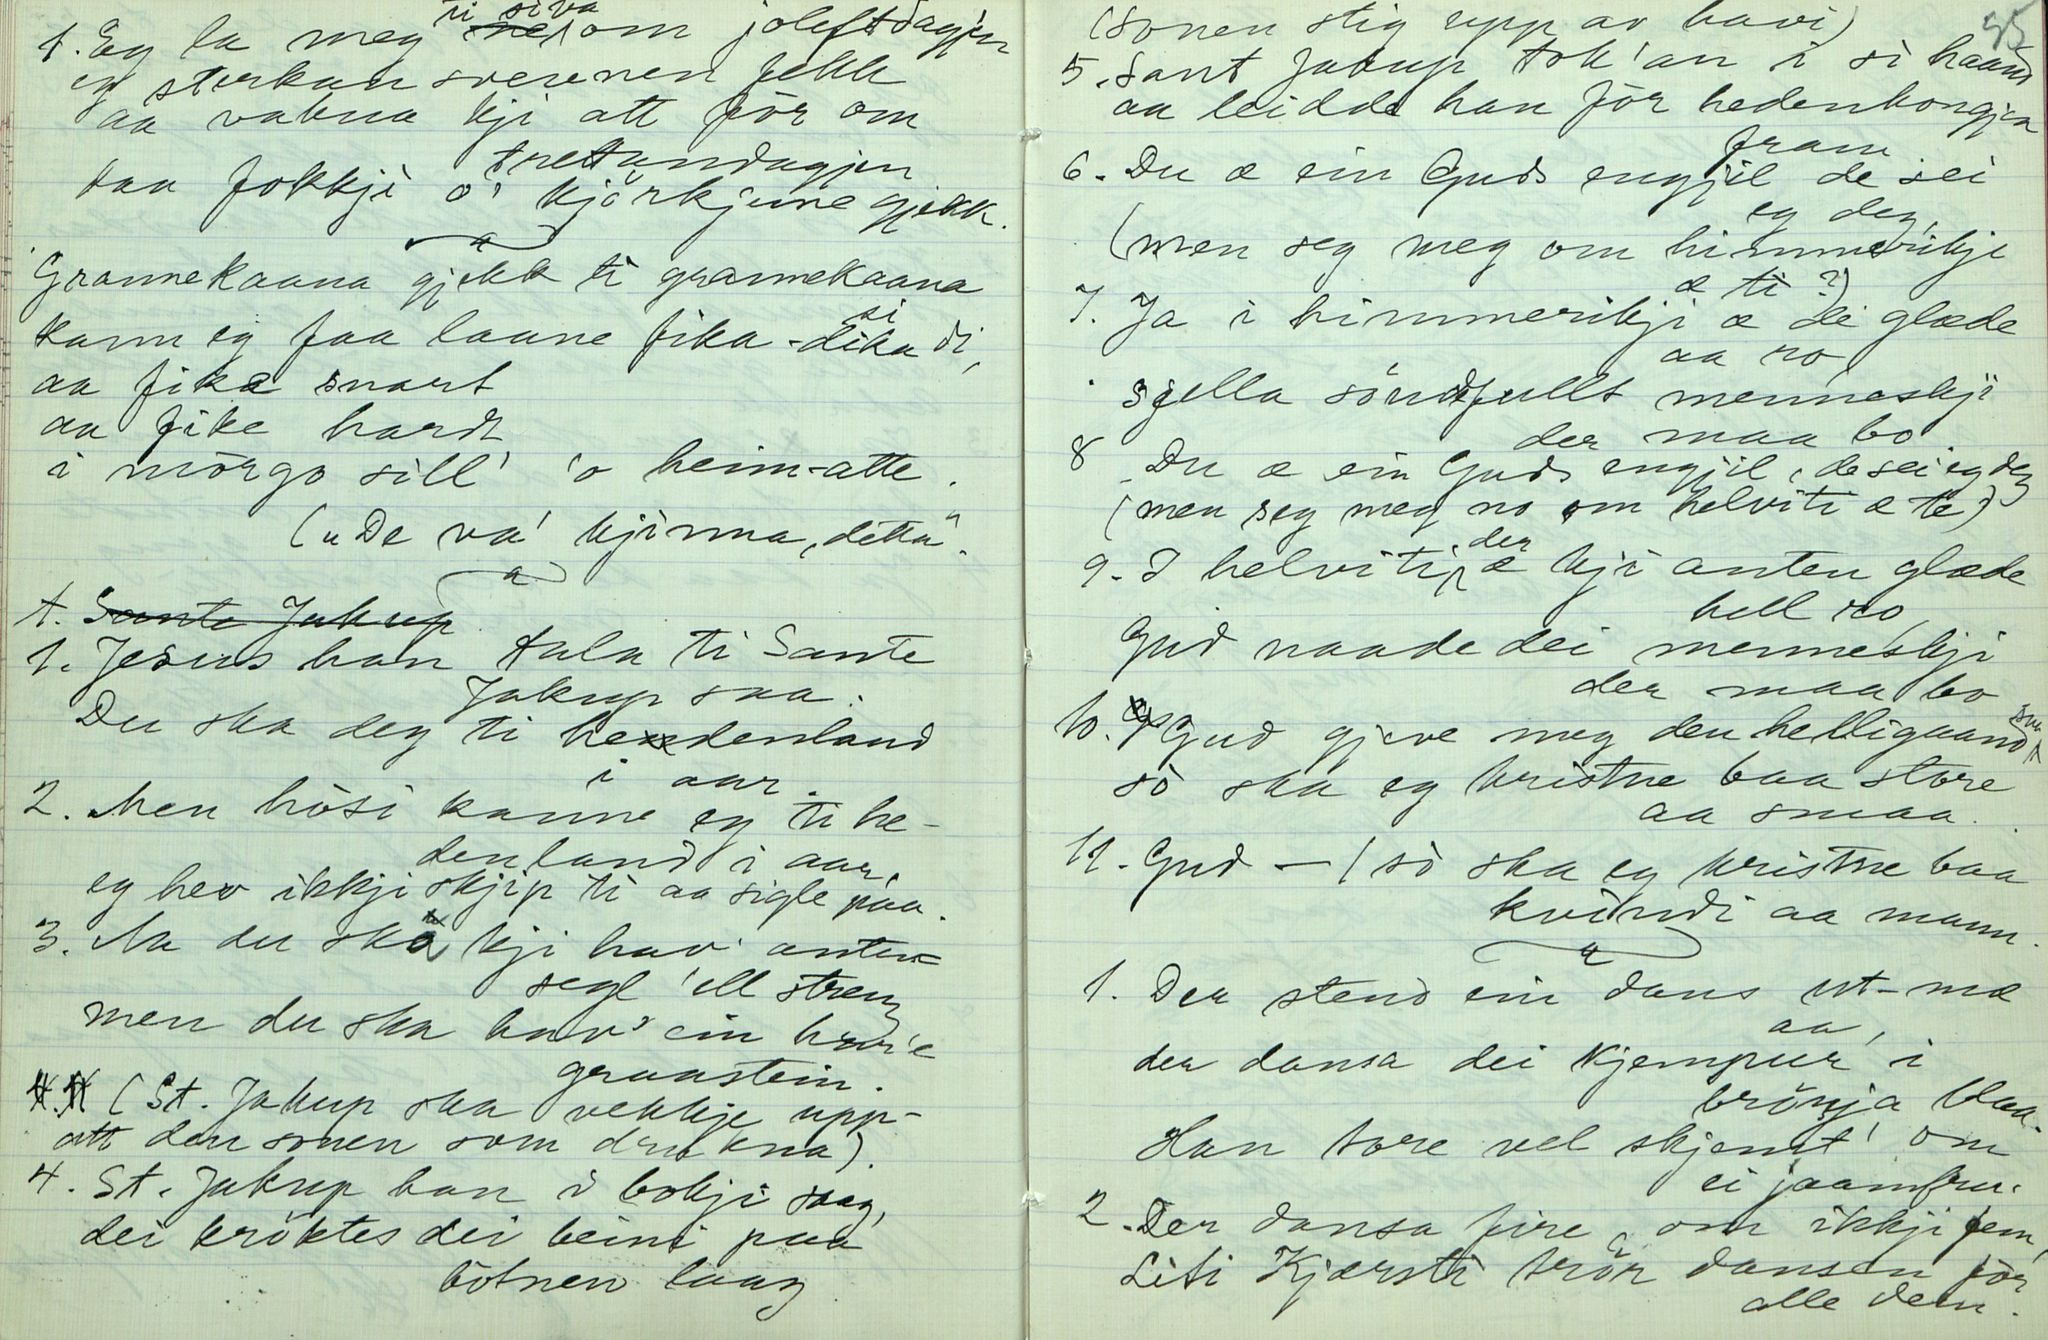 1. Eg la meg ti siva om joleftdagjen
eg sterkan svevnen fekk
aa vakna kji att för om
trettandagjen
daa fokkji o' kjörkjune gjekk.
Grannekaana gjekk ti grannekaana
kann eg faa laane fika-sika di,
aa fika snart
aa fike hardt
i mörgo sill' 'o heim-atte.
("De va' kjinna, detta".
1. Sante Jakup
1. Jesus han tala ti Sante
Jakup saa.
Du ska deg ti hedenland
i aar.
2. Men hösi kanne eg ti he-
denland i aar,
eg hev ikkji skjip ti aa sigle paa.
3. Aa du ska kji hav' anten
segl 'ell streng
men du ska hav' ein hvi'e
graastein.
(St. Jakup ska vekkje upp-
att den sonen som drukna).
4. St. Jakup han i bokji saag,
dei kröktes dei beini paa
bötnen laag
45
(Sonen stig upp av havi)
5. Sant Jakup tok 'an i si haand
aa leidde han för hedenkongjen
fram
6. Du æ ein Guds engjil de sei
eg deg,
(men seg meg om himmerikje
æ ti?)
7. Ja i himmerikji æ de glæde
aa ro
sjella söndfullt menneskji
der maa bo
8. Du æ ein Guds engjil, de sei eg deg
(men seg meg no om helviti æ te)
9. I helviti der æ kji anten glæde
hell ro
Gud naade dei menneskji
der maa bo
10. Gud gjeve meg den helligaand
sö ska eg kristne baa store
aa smaa.
11. Gud — / sö ska eg kristne baa
kvindi aa mann.
1. Der stend ein dans ut-mæ
aa,
der dansa dei kjempur i
brönja blaa.
Han tore vel skjemt' om
ei jaamfru.
2. Der dansa fire, om ikkji fem,
Liti Kjærsti trör dansen för
alle dem.